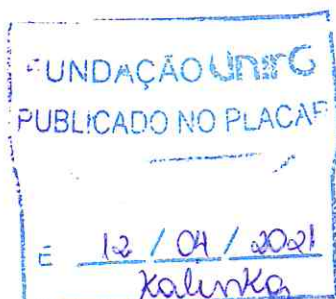 FUNDAÇÃO UnirG
PUBLICADO NO PLACAR
E 12 / 04 / 2021
Kalinka